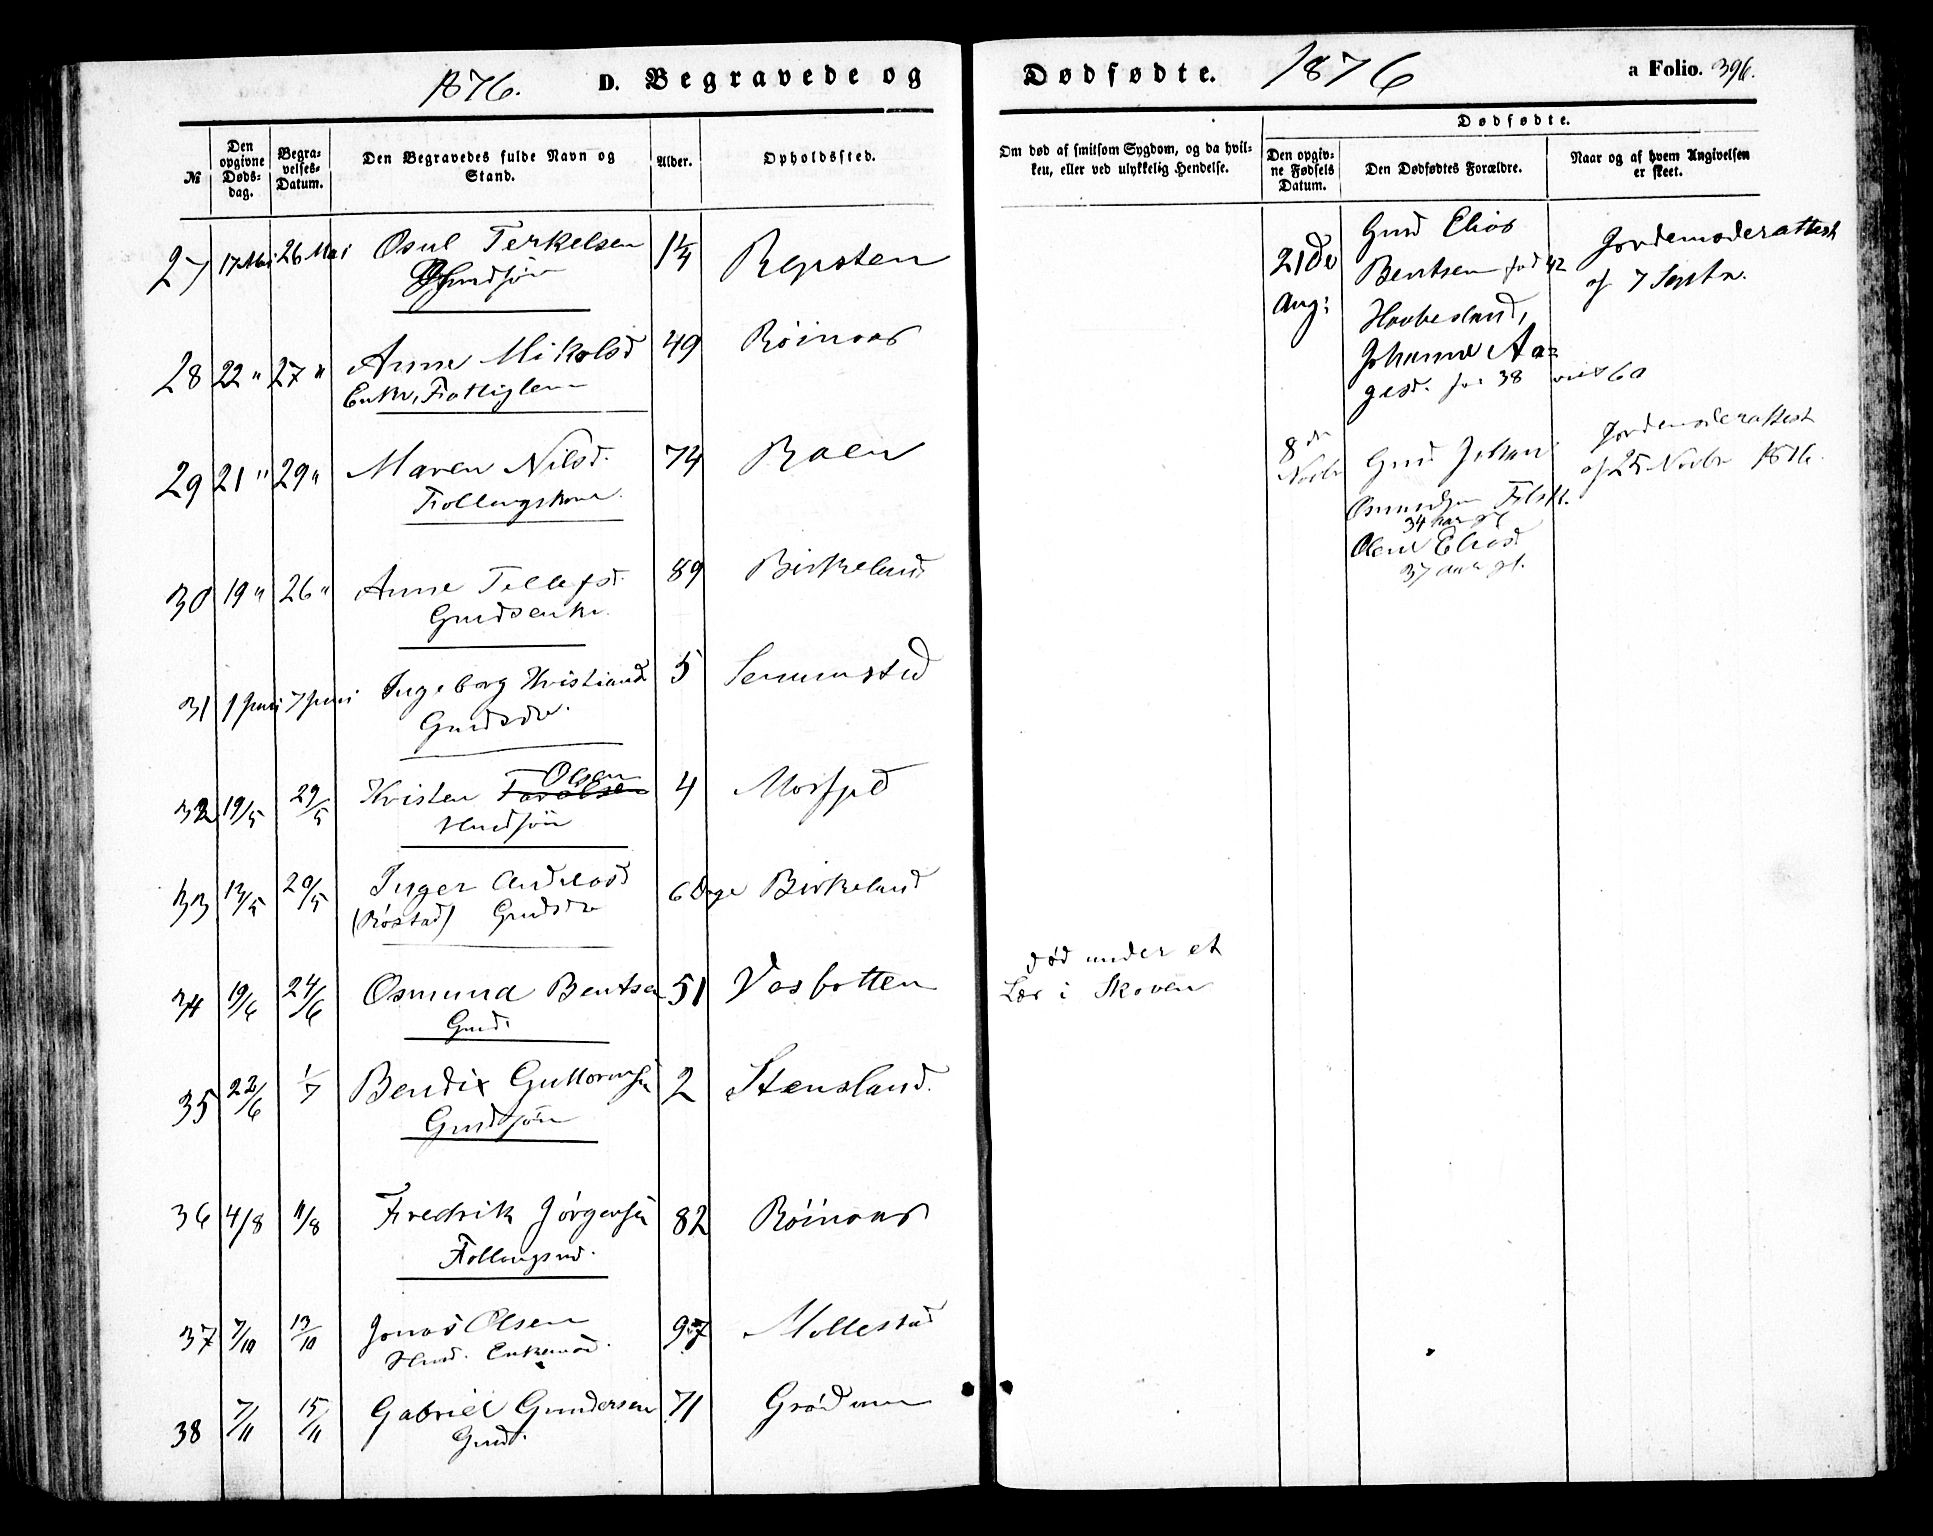 1876. D. Begravede og
Dødfødte. 1876 a Folio. 396.
№
Den opgivne Døds-dag.
Begra-velses-Datum.
Den Begravedes fulde Navn og Stand.
Alder.
Opholdssted.
Om død af smitsom Sygdom, og da hvil-
ken, eller ved ulykkelig Hendelse.
Dødfødte.
Den opgiv-
ne Fødsels
Datum.
Den Dødfødtes Forældre.
Naar og af hvem Angivelsen
er skeet.
27 17 Mai 26 Mai Osul Terkelsen Repsten
28 22 " 27 " Anne Mikalsd 49 Röinaas
Enke, Fattiglem
29 21 " 29 " Maren Nilsd. 74 Raen
30 19 " 26 " Anne Tellefsd. 89 Birkeland
Gmdsenke.
31 1 Juni 7 Juni Ingeborg Kristiansd 5
Gmdsdr.
32 19/5 29/5 Kristen Olsen 4
Hmdsön
33 13/5 20/5 Inger Andreasd 6 Dage Birkeland
(Röstad) Gmdsdr
34 19/6 24/6 Osmund Bentsen 51 Vasbotten død under et
Gmd. Læs i Skoven
35 22/6 1/7 Bendix Guttormsen 2 Stensland.
Gmdsön
36 4/8 11/8 Fredrik Jörgensen 82 Röinaas
37 7/10 13/10 Jonas Olsen 97 Mollestad
Hmd. Enkemad.
38 7/11 15/11 Gabriel Gundersen 71 Grödum
Gmd.
21de
Aug:
Gmd Elias
Bentsen fød 42
Johanne Aa=
gesd. fød 38
Jordemoderattest
af 7 Septbr.
8de
Novbr
Gmd. Johan
34 Aar gl
Olene Eliasd.
37 Aar gl.
Jordemoderattest
af 25 Novbr 1876.